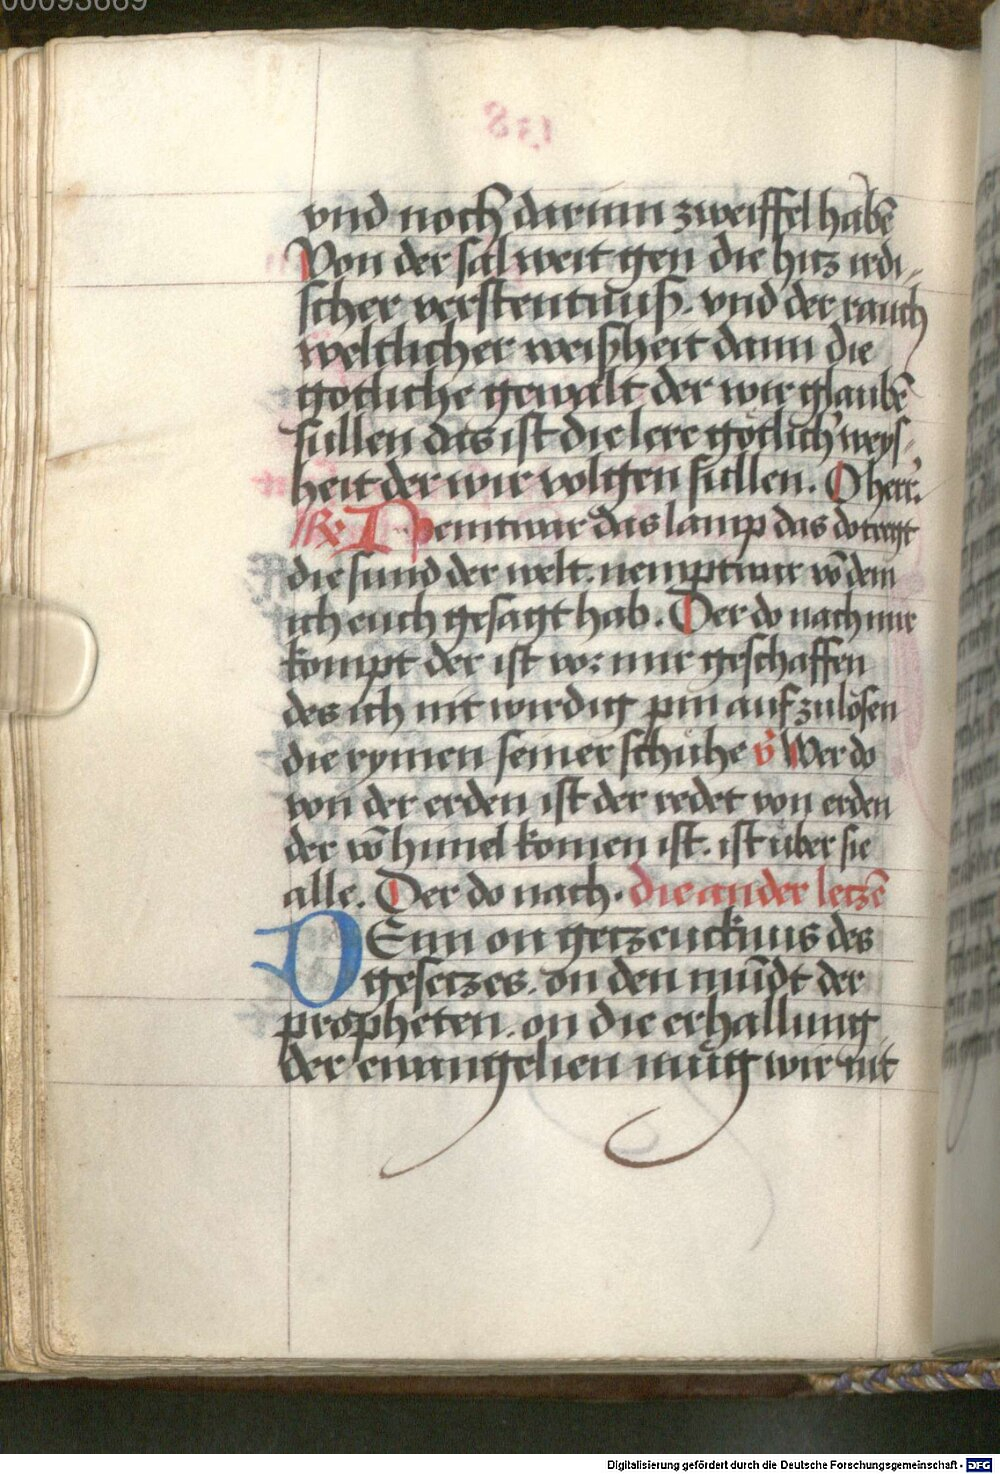 00093669
138
vnd noch darum̄ zweiffel habē
Von der sal weit gen die hitz irdi„
scher verstentnuß. vnd der rauch
weltlicher weißheit dann die
gotliche gewalt der wir glaubē
sullen das ist die lere gotlich' weys„
heit der wir volgen sullen. O herr.
R das lamp das do tregt
die sund der welt. nempt war vō dem
ich euch gesagt hab. Der do nach mir
kompt der ist vor mir geschaffen
des ich nit wirdig pin auf zulösen
die rymen seiner schuhe v̄ Wer do
von der erden ist der redet von erden
der vō himel komen ist. ist über sie
alle. Der do nach. die ander letzē
DEnn on getzeucknus des
gesetzes. on den mūdt der
propheten. on die erhallung
der ewangelien müg wir nit
Digitalisierung gefördert durch die Deutsche Forschungsgemeinschaft - DFG